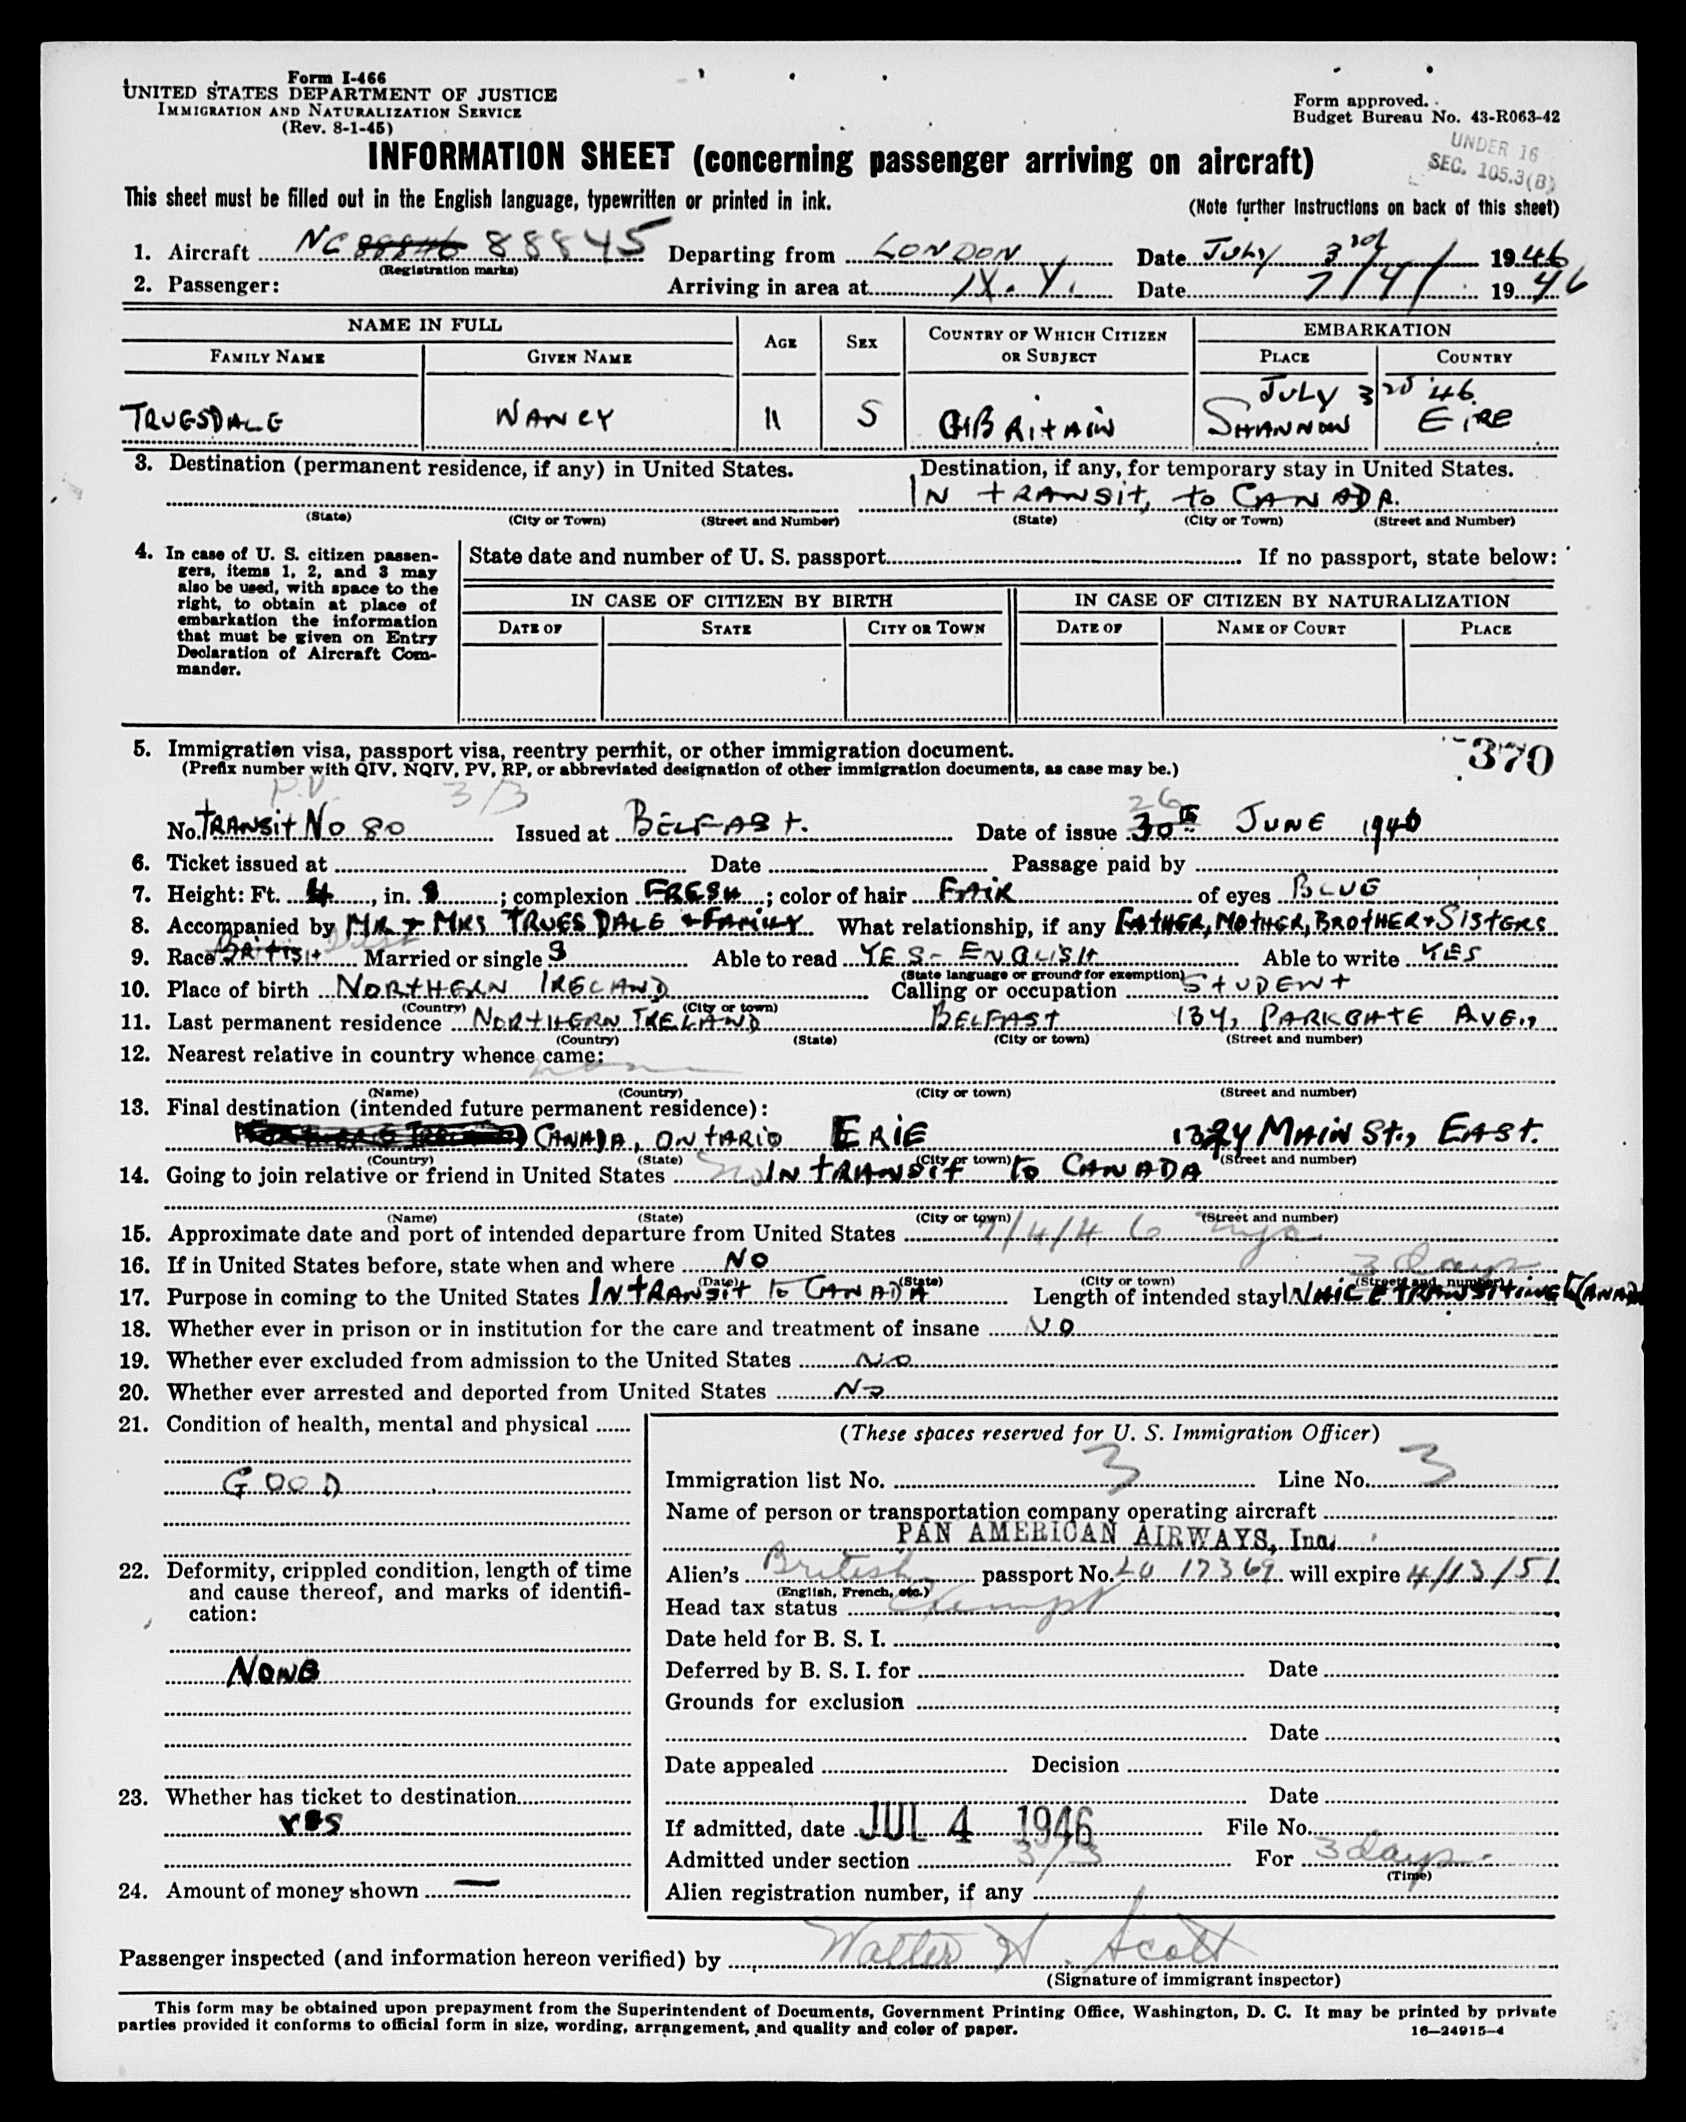 Form I-466
UNITED STATES DEPARTMENT OF JUSTICE
IMMIGRATION AND NATURALIZATION SERVICE
(Rev. 8-1-45)
Form approved.
Budget Bureau No. 43-R063-42
UNDER 16
SEC. 105.3(B)
INFORMATION SHEET (concerning passenger arriving on aircraft)
This sheet must be filled out in the English language, typewritten or printed in ink.
(Note further instructions on back of this sheet)
1. Aircraft NC 88846 88845 Departing from LONDON Date July 3rd 1946
(Registration marks)
2. Passenger: Arriving in area at N.Y. Date 7/4/ 1946
NAME IN FULL AGE SEX COUNTRY OF WHICH CITIZEN OR SUBJECT EMBARKATION
FAMILY NAME GIVEN NAME PLACE COUNTRY
July 3 '46
TRUESDALE NANCY 11 S GT BRITAIN SHANNON EIRE
3. Destination (permanent residence, if any) in United States. Destination, if any, for temporary stay in United States.
IN TRANSIT, to CANADA.
(State) (City or Town) (Street and Number) (State) (City or Town) (Street and Number)
4. In case of U. S. citizen passengers, items 1, 2, and 3 may also be used, with space to the right, to obtain at place of embarkation the information that must be given on Entry Declaration of Aircraft Commander.
State date and number of U. S. passport If no passport, state below:
IN CASE OF CITIZEN BY BIRTH IN CASE OF CITIZEN BY NATURALIZATION
DATE OF STATE CITY OR TOWN DATE OF NAME OF COURT PLACE
5. Immigration visa, passport visa, reentry permit, or other immigration document.
370
(Prefix number with QIV, NQIV, PV, RP, or abbreviated designation of other immigration documents, as case may be.)
P.V. 3/3 26
No. TRANSIT No 80 Issued at BELFAST. Date of issue 30th JUNE 1946
6. Ticket issued at Date Passage paid by
7. Height: Ft. 4, in. 8; complexion FRESH; color of hair FAIR of eyes BLUE
8. Accompanied by MR & MRS TRUESDALE & FAMILY What relationship, if any FATHER, MOTHER, BROTHER & SISTERS
9. Race British Married or single S Able to read YES - ENGLISH Able to write YES
(State language or ground for exemption)
10. Place of birth NORTHERN IRELAND Calling or occupation STUDENT
(Country) (City or town)
11. Last permanent residence NORTHERN IRELAND BELFAST 134, PARKGATE AVE.,
(Country) (State) (City or town) (Street and number)
12. Nearest relative in country whence came:
none
(Name) (Country) (City or town) (Street and number)
13. Final destination (intended future permanent residence):
CANADA, ONTARIO ERIE 1324 MAIN St., EAST.
(Country) (State) (City or town) (Street and number)
14. Going to join relative or friend in United States IN TRANSIT to CANADA
(Name) (State) (City or town) (Street and number)
15. Approximate date and port of intended departure from United States 7/4/46 nyc
16. If in United States before, state when and where NO
3 days
(Date) (State) (City or town) (Street and number)
17. Purpose in coming to the United States IN TRANSIT to CANADA Length of intended stay WHILE TRANSITING CANADA
18. Whether ever in prison or in institution for the care and treatment of insane NO
19. Whether ever excluded from admission to the United States NO
20. Whether ever arrested and deported from United States No
21. Condition of health, mental and physical
GOOD
22. Deformity, crippled condition, length of time and cause thereof, and marks of identification:
NONE
23. Whether has ticket to destination
YES
24. Amount of money shown —
(These spaces reserved for U. S. Immigration Officer)
Immigration list No. 3 Line No. 3
Name of person or transportation company operating aircraft
PAN AMERICAN AIRWAYS, Inc.
Alien's British passport No. LO 17369 will expire 4/13/51
(English, French, etc.)
Head tax status Exempt
Date held for B. S. I.
Deferred by B. S. I. for Date
Grounds for exclusion
Date
Date appealed Decision
Date
If admitted, date JUL 4 1946 File No.
Admitted under section 3/3 For 3 days
(Time)
Alien registration number, if any
Passenger inspected (and information hereon verified) by Walter H. Scott
(Signature of immigrant inspector)
This form may be obtained upon prepayment from the Superintendent of Documents, Government Printing Office, Washington, D. C. It may be printed by private
parties provided it conforms to official form in size, wording, arrangement, and quality and color of paper.
16—24915-4